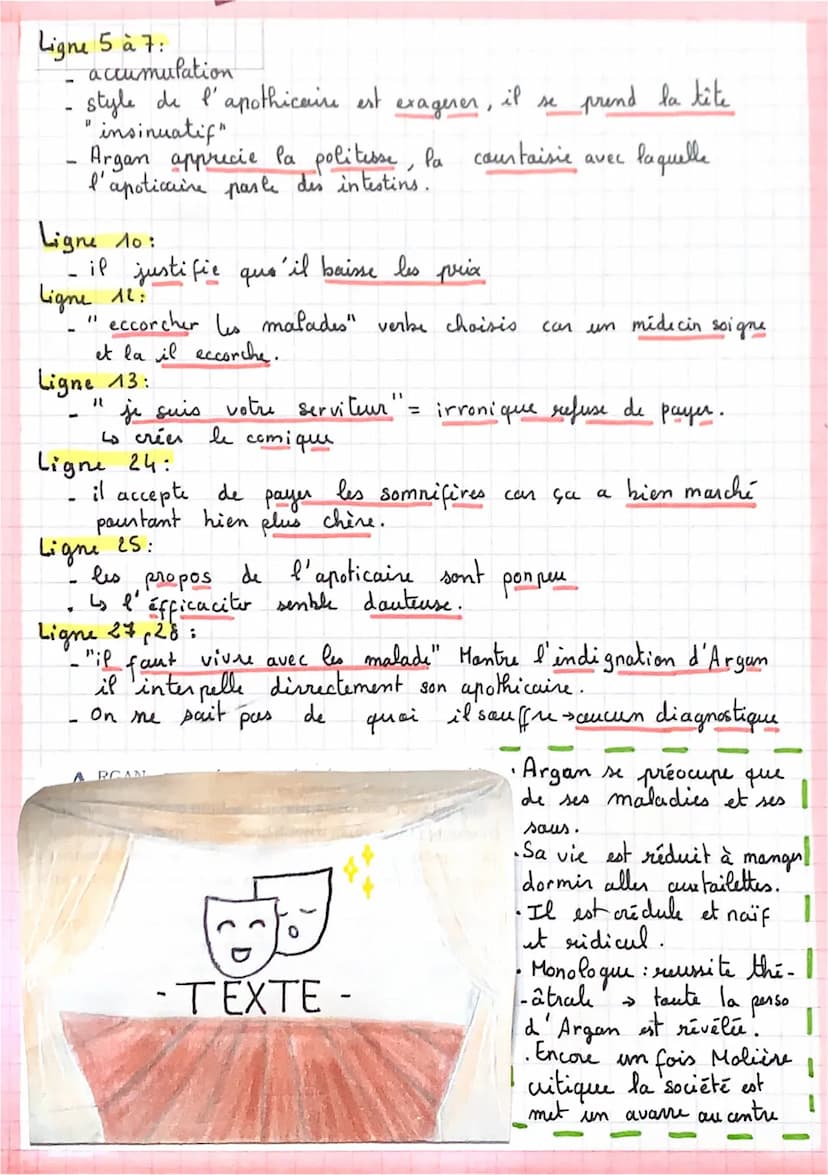 Ligne 5 à 7:
- accumulation
- style de l'apothicaire est exagerer, il se prend la tête
"insinuatif"
- Argan apprecie la politesse, la courtaisie avec laquelle
l'apoticaire parle des intestins.
Ligne 10:
- il justifie qu'il baisse les prix
Ligne 12:
- "eccorcher les malades" verbe choisis car un médecin soigne
et la il eccorche.
Ligne 13:
- "je suis votre serviteur" = irronique refuse de payer.
↳ créer le comique
Ligne 24:
- il accepte de payer les somnifères car ça a bien marché
pourtant bien plus chère.
Ligne 25:
- les propos de l'apoticaire sont ponpeu
. ↳ l'éfficaciter semble douteuse.
Ligne 27,28:
- "il faut vivre avec les malade" Montre l'indignation d'Argan
il interpelle dirrectement son apothicaire.
- On ne sait pas de quoi il souffre → aucun diagnostique
ARGAN
- TEXTE -
· Argan se préocupe que
de ses maladies et ses
sous.
· Sa vie est réduit à manger
dormir aller aux toilettes.
· Il est crédule et naïf
et ridicul.
· Monologue : reussite thé-
-âtrale → toute la perso
d'Argan est révélée.
. Encore un fois Molière
critique la société est
met un avarre au centre